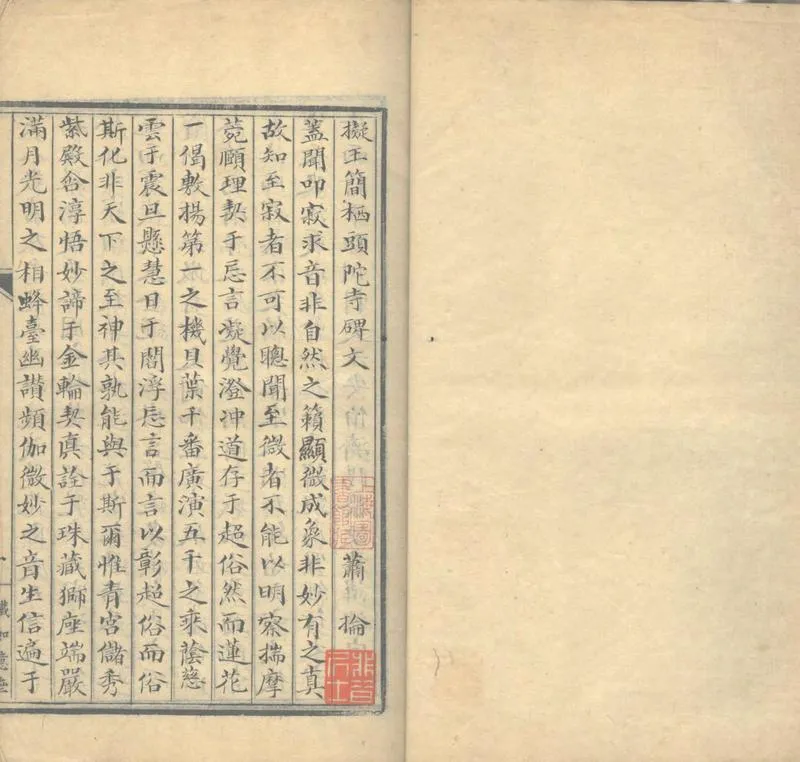 擬王簡栖頭陀寺碑文 蕭掄
蓋聞叩寂求音非自然之籟顯微成象非妙有之真
故知至寂者不可以聰聞至微者不能以明察揣摩
菀頤理契于忘言凝覺澄沖道存于超俗然而蓮花
一偈敷揚第一之機貝葉千番廣演五千之乘蔭慈
雲于震旦懸慧日于閻浮忘言而言以彰超俗而俗
斯化非天下之至神其孰能與于斯爾惟青宮儲秀
紫殿含淳悟妙諦于金輪契真詮于珠藏獅座端嚴
滿月光明之相蜂臺幽讃頻伽微妙之音生信遍于
上海圖書館藏